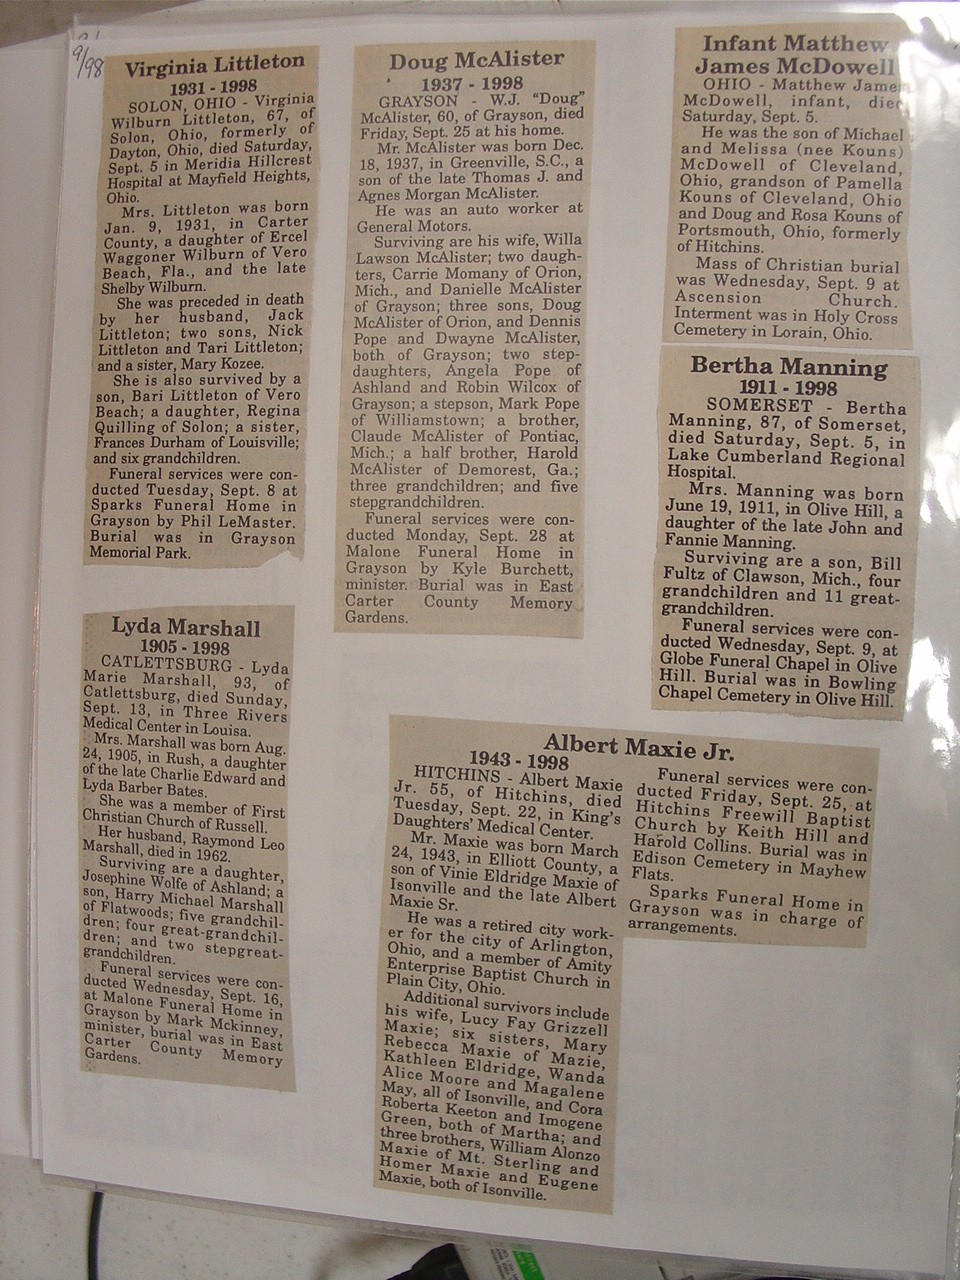 9/98
Virginia Littleton
1931 - 1998
SOLON, OHIO - Virginia
Wilburn Littleton, 67, of
Solon, Ohio, formerly of
Dayton, Ohio, died Saturday,
Sept. 5 in Meridia Hillcrest
Hospital at Mayfield Heights,
Ohio.
Mrs. Littleton was born
Jan. 9, 1931, in Carter
County, a daughter of Ercel
Waggoner Wilburn of Vero
Beach, Fla., and the late
Shelby Wilburn.
She was preceded in death
by her husband, Jack
Littleton; two sons, Nick
Littleton and Tari Littleton;
and a sister, Mary Kozee.
She is also survived by a
son, Bari Littleton of Vero
Beach; a daughter, Regina
Quilling of Solon; a sister,
Frances Durham of Louisville;
and six grandchildren.
Funeral services were con-
ducted Tuesday, Sept. 8 at
Sparks Funeral Home in
Grayson by Phil LeMaster.
Burial was in Grayson
Memorial Park.
Lyda Marshall
1905 - 1998
CATLETTSBURG - Lyda
Marie Marshall, 93, of
Catlettsburg, died Sunday,
Sept. 13, in Three Rivers
Medical Center in Louisa.
Mrs. Marshall was born Aug.
24, 1905, in Rush, a daughter
of the late Charlie Edward and
Lyda Barber Bates.
She was a member of First
Christian Church of Russell.
Her husband, Raymond Leo
Marshall, died in 1962.
Surviving are a daughter,
Josephine Wolfe of Ashland; a
son, Harry Michael Marshall
of Flatwoods; five grandchil-
dren; four great-grandchil-
dren; and two stepgreat-
grandchildren.
Funeral services were con-
ducted Wednesday, Sept. 16,
at Malone Funeral Home in
Grayson by Mark Mckinney,
minister, burial was in East
Carter County Memory
Gardens.
Doug McAlister
1937 - 1998
GRAYSON - W.J. "Doug"
McAlister, 60, of Grayson, died
Friday, Sept. 25 at his home.
Mr. McAlister was born Dec.
18, 1937, in Greenville, S.C., a
son of the late Thomas J. and
Agnes Morgan McAlister.
He was an auto worker at
General Motors.
Surviving are his wife, Willa
Lawson McAlister; two daugh-
ters, Carrie Momany of Orion,
Mich., and Danielle McAlister
of Grayson; three sons, Doug
McAlister of Orion, and Dennis
Pope and Dwayne McAlister,
both of Grayson; two step-
daughters, Angela Pope of
Ashland and Robin Wilcox of
Grayson; a stepson, Mark Pope
of Williamstown; a brother,
Claude McAlister of Pontiac,
Mich.; a half brother, Harold
McAlister of Demorest, Ga.;
three grandchildren; and five
stepgrandchildren.
Funeral services were con-
ducted Monday, Sept. 28 at
Malone Funeral Home in
Grayson by Kyle Burchett,
minister. Burial was in East
Carter County Memory
Gardens.
Infant Matthew
James McDowell
OHIO - Matthew James
McDowell, infant, died
Saturday, Sept. 5.
He was the son of Michael
and Melissa (nee Kouns)
McDowell of Cleveland,
Ohio, grandson of Pamella
Kouns of Cleveland, Ohio
and Doug and Rosa Kouns of
Portsmouth, Ohio, formerly
of Hitchins.
Mass of Christian burial
was Wednesday, Sept. 9 at
Ascension Church.
Interment was in Holy Cross
Cemetery in Lorain, Ohio.
Bertha Manning
1911 - 1998
SOMERSET - Bertha
Manning, 87, of Somerset,
died Saturday, Sept. 5, in
Lake Cumberland Regional
Hospital.
Mrs. Manning was born
June 19, 1911, in Olive Hill, a
daughter of the late John and
Fannie Manning.
Surviving are a son, Bill
Fultz of Clawson, Mich., four
grandchildren and 11 great-
grandchildren.
Funeral services were con-
ducted Wednesday, Sept. 9, at
Globe Funeral Chapel in Olive
Hill. Burial was in Bowling
Chapel Cemetery in Olive Hill.
Albert Maxie Jr.
1943 - 1998
HITCHINS - Albert Maxie
Jr. 55, of Hitchins, died
Tuesday, Sept. 22, in King's
Daughters' Medical Center.
Mr. Maxie was born March
24, 1943, in Elliott County, a
son of Vinie Eldridge Maxie of
Isonville and the late Albert
Maxie Sr.
He was a retired city work-
er for the city of Arlington,
Ohio, and a member of Amity
Enterprise Baptist Church in
Plain City, Ohio.
Additional survivors include
his wife, Lucy Fay Grizzell
Maxie; six sisters, Mary
Rebecca Maxie of Mazie,
Kathleen Eldridge, Wanda
Alice Moore and Magalene
May, all of Isonville, and Cora
Roberta Keeton and Imogene
Green, both of Martha; and
three brothers, William Alonzo
Maxie of Mt. Sterling and
Homer Maxie and Eugene
Maxie, both of Isonville.
Funeral services were con-
ducted Friday, Sept. 25, at
Hitchins Freewill Baptist
Church by Keith Hill and
Harold Collins. Burial was in
Edison Cemetery in Mayhew
Flats.
Sparks Funeral Home in
Grayson was in charge of
arrangements.